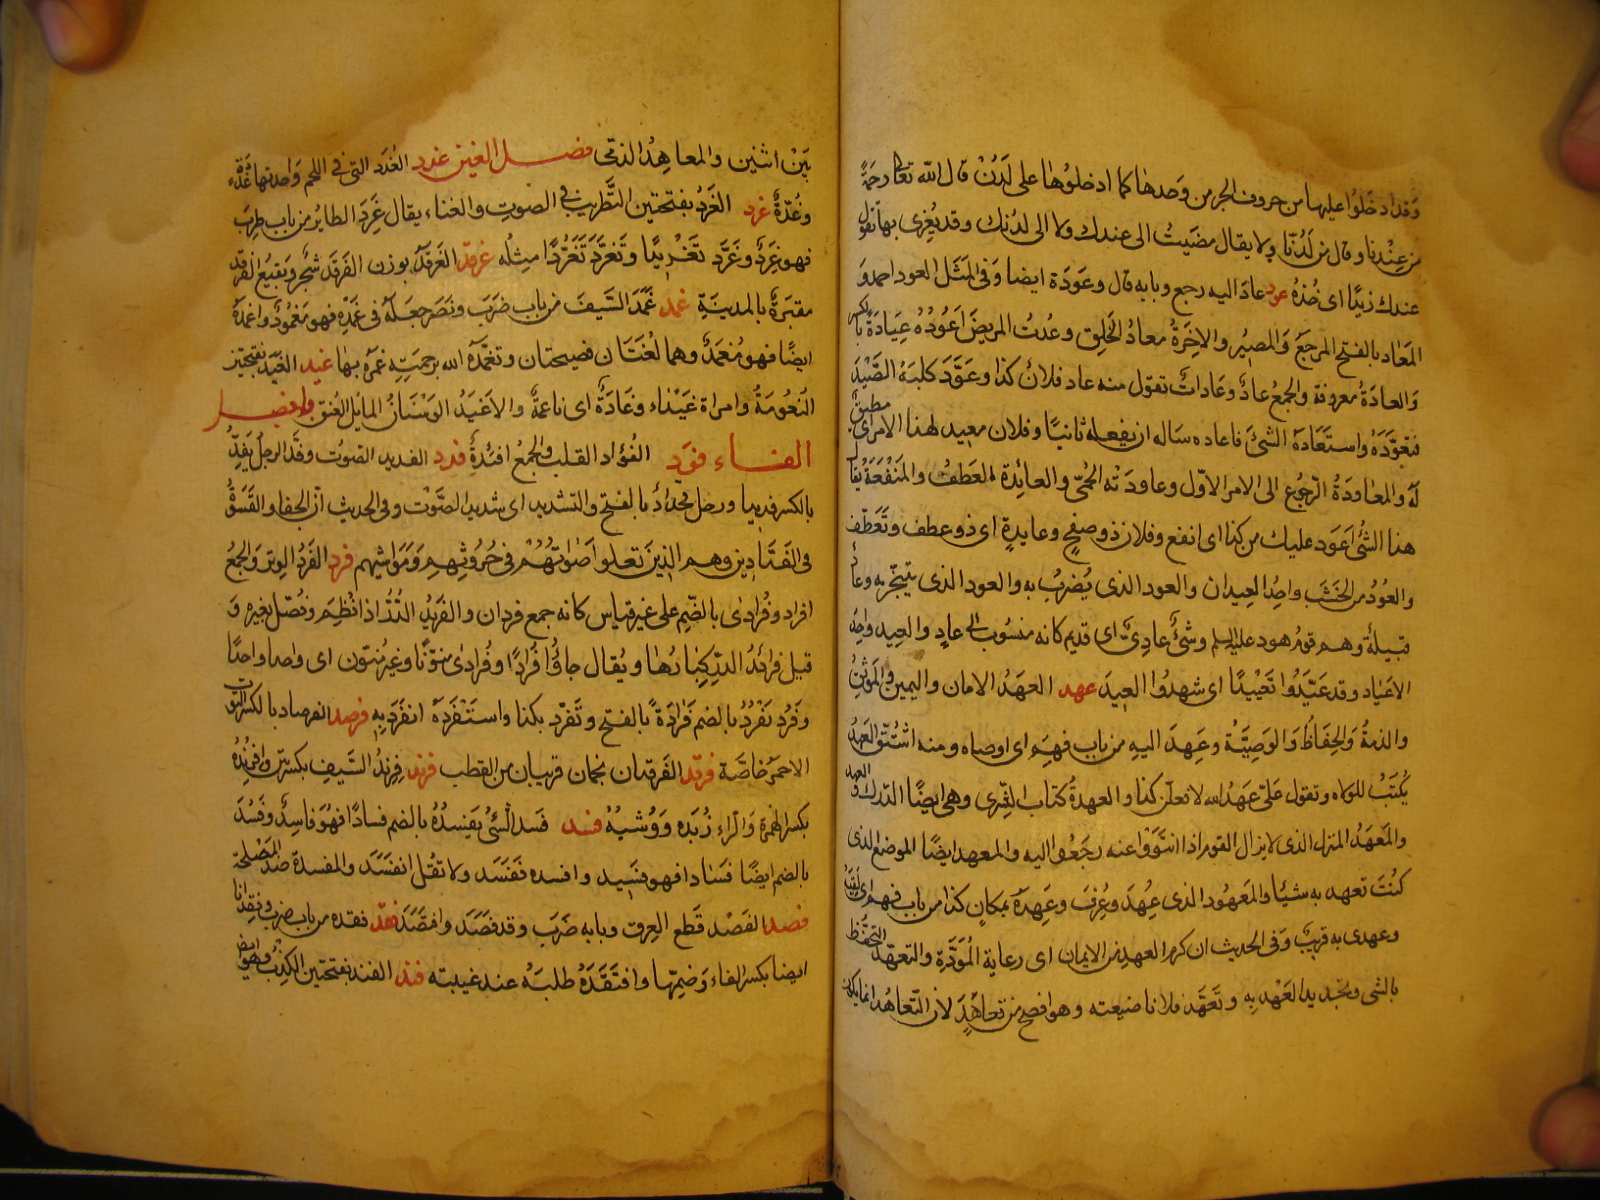 وقد ادخلوا عليها من حروف الجر من وحدها كما ادخلوها على لدن قال الله تعالى رحمة
من عندنا وقال من لدنا ولا يقال مضيت الى عندك ولا الى لدنك وقد يغرى بها تقول
عندك زيدا اى خذه عود عاد اليه رجع وبابه قال وعودة ايضا وفى المثل العود احمد و
المعاد بالفتح المرجع والمصير والاخرة معاد الخلق وعدت المريض اعوده عيادة بالكسر
والعادة معروفة والجمع عاد وعادات تقول منه عاد فلان كذا وعود كلبه الصيد
فتعوده واستعاده الشئ فاعاده ساله ان يفعله ثانيا وفلان معيد لهذا الامر اى مطيق
له والمعاودة الرجوع الى الامر الاول وعاودته الحمى والعائدة العطف والمنفعة يقال
هذا الشئ اعود عليك من كذا اى انفع وفلان ذو صفح وعايدة اى ذو عطف وتعطف
والعود من الخشب واحد العيدان والعود الذى يضرب به والعود الذى يتبخر به وعاد
قبيلة وهم قوم هود عليه السلم وشئ عادى اى قديم كانه منسوب الى عاد والعيد واحد
الاعياد وقد عيدوا تعييدا اى شهدوا العيد عهد العهد الامان واليمين والموثق
والذمة والحفاظ والوصية وعهد اليه من باب فهم اى اوصاه ومنه اشتق العهد
يكتب للولاه وتقول على عهد الله لافعلن كذا والعهدة كتاب الشرى وهى ايضا الدرك والعهد
والمعهد المنزل الذى لا يزال القوم اذا انتووا عنه رجعوا اليه والمعهد ايضا الموضع الذى
كنت تعهد به شيئا والمعهود الذى عهد وعرف وعهده بمكان كذا من باب فهم اى لقيه
وعهدى به قريب وفى الحديث ان كرم العهد من الايمان اى رعاية المودة والتعهد التحفظ
بالشى وتجديد العهد به وتعهد فلانا ضيعته وهو افصح من تعاهد لان التعاهد انما يكون
بين اثنين والمعاهد الذمى فصل الغين غدد الغدد التى فى اللحم واحدتها غدة
وغدة غرد الغرد بفتحتين التطريب فى الصوت والغناء يقال غرد الطائر من باب طرب
فهو غرد وغرد تغريدا وتغرد تغردا مثله غرقد الغرقد بوزن الفرقد شجر وبقيع الغرقد
مقبرة بالمدينة غمد غمد السيف من باب ضرب ونصر جعله فى غمده فهو مغمود واغمده
ايضا فهو مغمد وهما لغتان فصيحتان وتغمده الله برحمته غمره بها غيد الغيد بفتحتين
النعومة وامراة غيداء وغادة اى ناعمة والاغيد الوسنان المايل العنق فصل
الفاء فود الفؤاد القلب والجمع افئدة فدد الفديد الصوت وفد الرجل يفد
بالكسر فديدا ورجل فداد بالفتح والتشديد اى شديد الصوت وفى الحديث ان الجفاء والقسوة
فى الفدادين وهم الذين تعلوا اصواتهم فى حروثهم ومواشيهم فرد الفرد الوتر والجمع
افراد وفرادى بالضم على غير قياس كانه جمع فردان والفريد الدر اذا نظم وفصل بغيره و
قيل فرائد الدر كبارها ويقال جاؤا فرادا وفرادى منونا وغير منون اى واحدا واحدا
وفرد يفرد بالضم فرادة بالفتح وتفرد بكذا واستفرده انفرد به فرصد الفرصاد بالكسر التوت
الاحمر خاصة فرقد الفرقدان نجمان قريبان من القطب فرند فرند السيف بكسرتين وافرنده
بكسر الهمزة والراء زبده ووشيه فسد فسد الشئ يفسد بالضم فسادا فهو فاسد وفسد
بالضم ايضا فسادا فهو فسيد وافسده ففسد ولا تقل انفسد والمفسدة ضد المصلحة
فصد الفصد قطع العرق وبابه ضرب وقد فصد وافتصد فقد فقده من باب ضرب وفقدانا
ايضا بكسر الفاء وضمها وافتقده طلبه عند غيبته فند الفند بفتحتين الكذب وهو ايضا